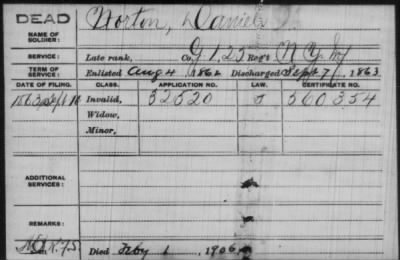 DEAD
Norton, Daniel
NAME OF SOLDIER:
SERVICE: Late rank, Co. G, 125 Reg't N.Y. Inf
TERM OF SERVICE: Enlisted Aug 4, 1862 Discharged Sept 7, 1863
DATE OF FILING. CLASS. APPLICATION NO. LAW. CERTIFICATE NO.
1863 Sept 10 Invalid, 32520 560354
Widow,
Minor,
ADDITIONAL SERVICES:
REMARKS:
Died Feby 1, 1906